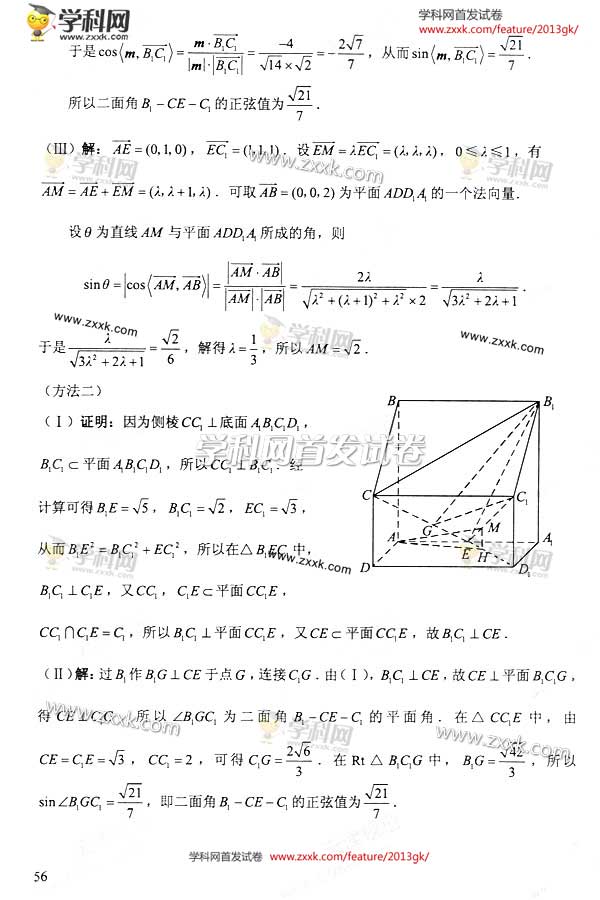 学科网首发试卷
www.zxxk.com/feature/2013gk/
学科网
www.zxxk.com
于是cos⟨m, B₁C₁⟩ = m·B₁C₁ / (|m|·|B₁C₁|) = −4 / (√14×√2) = −2√7/7，从而sin⟨m, B₁C₁⟩ = √21/7．
所以二面角B₁−CE−C₁的正弦值为√21/7．
(Ⅲ) 解：AE = (0,1,0)，EC₁ = (1,1,1)．设EM = λEC₁ = (λ,λ,λ)，0≤λ≤1，有
AM = AE + EM = (λ,λ+1,λ)．可取AB = (0,0,2)为平面ADD₁A₁的一个法向量．
设θ为直线AM与平面ADD₁A₁所成的角，则
sinθ = |cos⟨AM, AB⟩| = |AM·AB| / (|AM|·|AB|) = 2λ / (√(λ²+(λ+1)²+λ²)×2) = λ / √(3λ²+2λ+1)．
于是 λ / √(3λ²+2λ+1) = √2/6，解得λ = 1/3，所以AM = √2．
(方法二)
(Ⅰ) 证明：因为侧棱CC₁⊥底面A₁B₁C₁D₁，
B₁C₁⊂平面A₁B₁C₁D₁，所以CC₁⊥B₁C₁．经
计算可得B₁E = √5，B₁C₁ = √2，EC₁ = √3，
从而B₁E² = B₁C₁² + EC₁²，所以在△B₁EC₁中，
B₁C₁⊥C₁E，又CC₁，C₁E⊂平面CC₁E，
CC₁∩C₁E = C₁，所以B₁C₁⊥平面CC₁E，又CE⊂平面CC₁E，故B₁C₁⊥CE．
B
B₁
C
C₁
G
M
A
A₁
E
H
D
D₁
(Ⅱ) 解：过B₁作B₁G⊥CE于点G，连接C₁G．由(Ⅰ)，B₁C₁⊥CE，故CE⊥平面B₁C₁G，
得CE⊥C₁G，所以∠B₁GC₁为二面角B₁−CE−C₁的平面角．在△CC₁E中，由
CE = C₁E = √3，CC₁ = 2，可得C₁G = 2√6/3．在Rt△B₁C₁G中，B₁G = √42/3，所以
sin∠B₁GC₁ = √21/7，即二面角B₁−CE−C₁的正弦值为√21/7．
学科网首发试卷 www.zxxk.com/feature/2013gk/
56